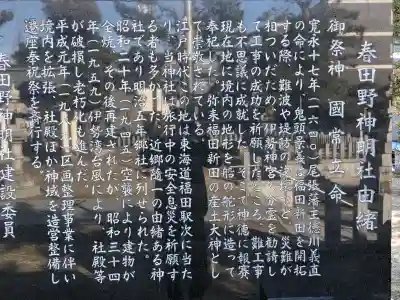 春田野神明社由緒
御祭神 國常立命
寛永十七年(一六四〇)尾張藩主徳川義直
の命により、鬼頭景義が福田新田を開拓
する際、難波や堤防の決壊など、災難が
相ついだため、伊勢神宮の分霊を勧請し
て工事の成功を祈願したところ、難工事
も不思議に成就した。そこで神徳に報賽
現在地に境内の地形を船の舵形に造って
奉祀した。弥来福田新田の産土大神とし
て崇敬されている。
江戸時代この地は東海道福田取次に当た
り、当神社は、旅行中の安全息災を祈願す
る者も多かった。近郷随一の由緒ある神
社であり明治五年郷社に列せられた。
昭和二十年(一九四五)空襲により建物が
全焼、その後再建されたが、昭和三十四
年(一九五九)伊勢湾台風により、社殿等
が破損し老朽化も進んだ。
平成元年(一九八九)区画整理事業に伴い
境内を拡張、社殿ほか神域を造営整備し
遷座奉祝祭を斎行する。
春田野神明社建設委員